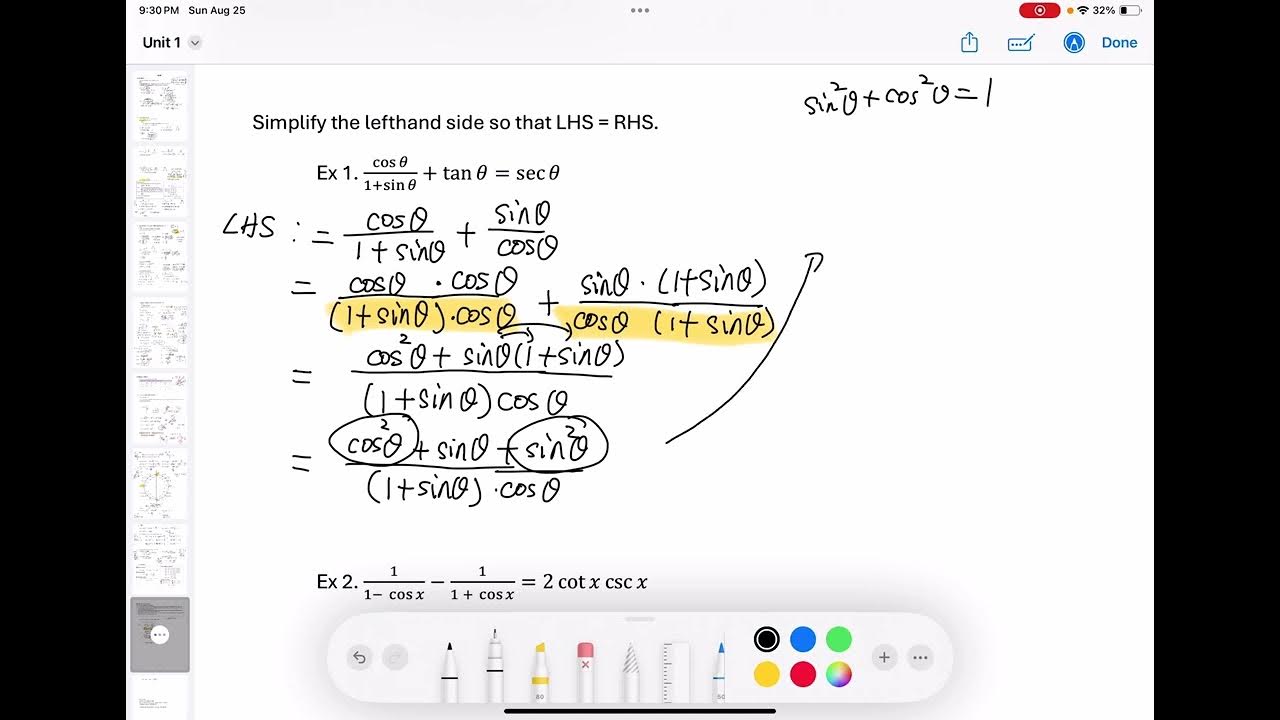 9:30 PM Sun Aug 25
32%
Unit 1
Done
sin²θ + cos²θ = 1
Simplify the lefthand side so that LHS = RHS.
Ex 1. cos θ / (1+sin θ) + tan θ = sec θ
LHS : = cosθ / (1 + sinθ) + sinθ / cosθ
= cosθ · cosθ / ((1+sinθ)·cosθ) + sinθ · (1+sinθ) / (cosθ (1+sinθ))
= (cos²θ + sinθ(1+sinθ)) / ((1+sinθ) cosθ)
= (cos²θ + sinθ + sin²θ) / ((1+sinθ) · cosθ)
Ex 2. 1 / (1− cos x) − 1 / (1 + cos x) = 2 cot x csc x
80
50